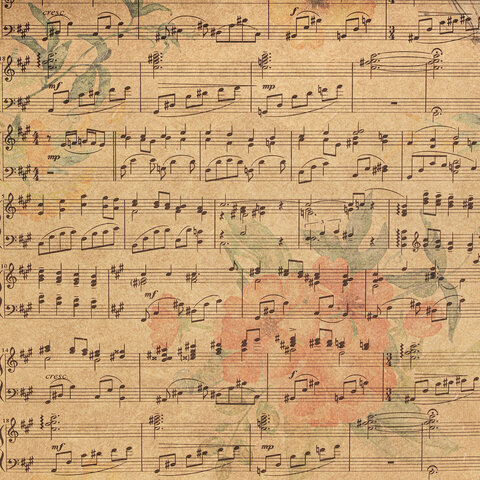 cresc.
f
mf
mp
mp
mf
14
cresc.
f
mf
mp